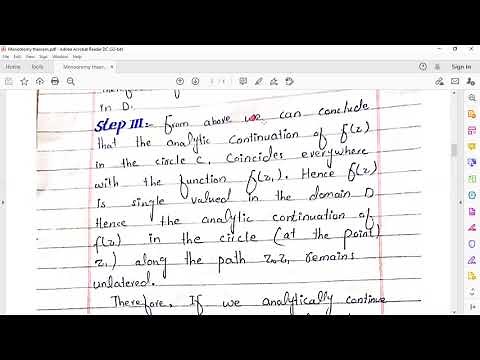 Monodromy theorem.pdf - Adobe Acrobat Reader DC (32-bit)
File Edit View Sign Window Help
Home Tools Monodromy theor...
Sign In
in D.
Step III:- From above we can conclude
that the analytic continuation of f(z)
in the circle C, Coincides everywhere
with the function f(z₁). Hence f(z)
is single valued in the domain D
Hence the analytic continuation of
f(z) in the circle (at the point)
z₁) along the path z₀z₁ remains
unlatered.
Therefore, If we analytically continue